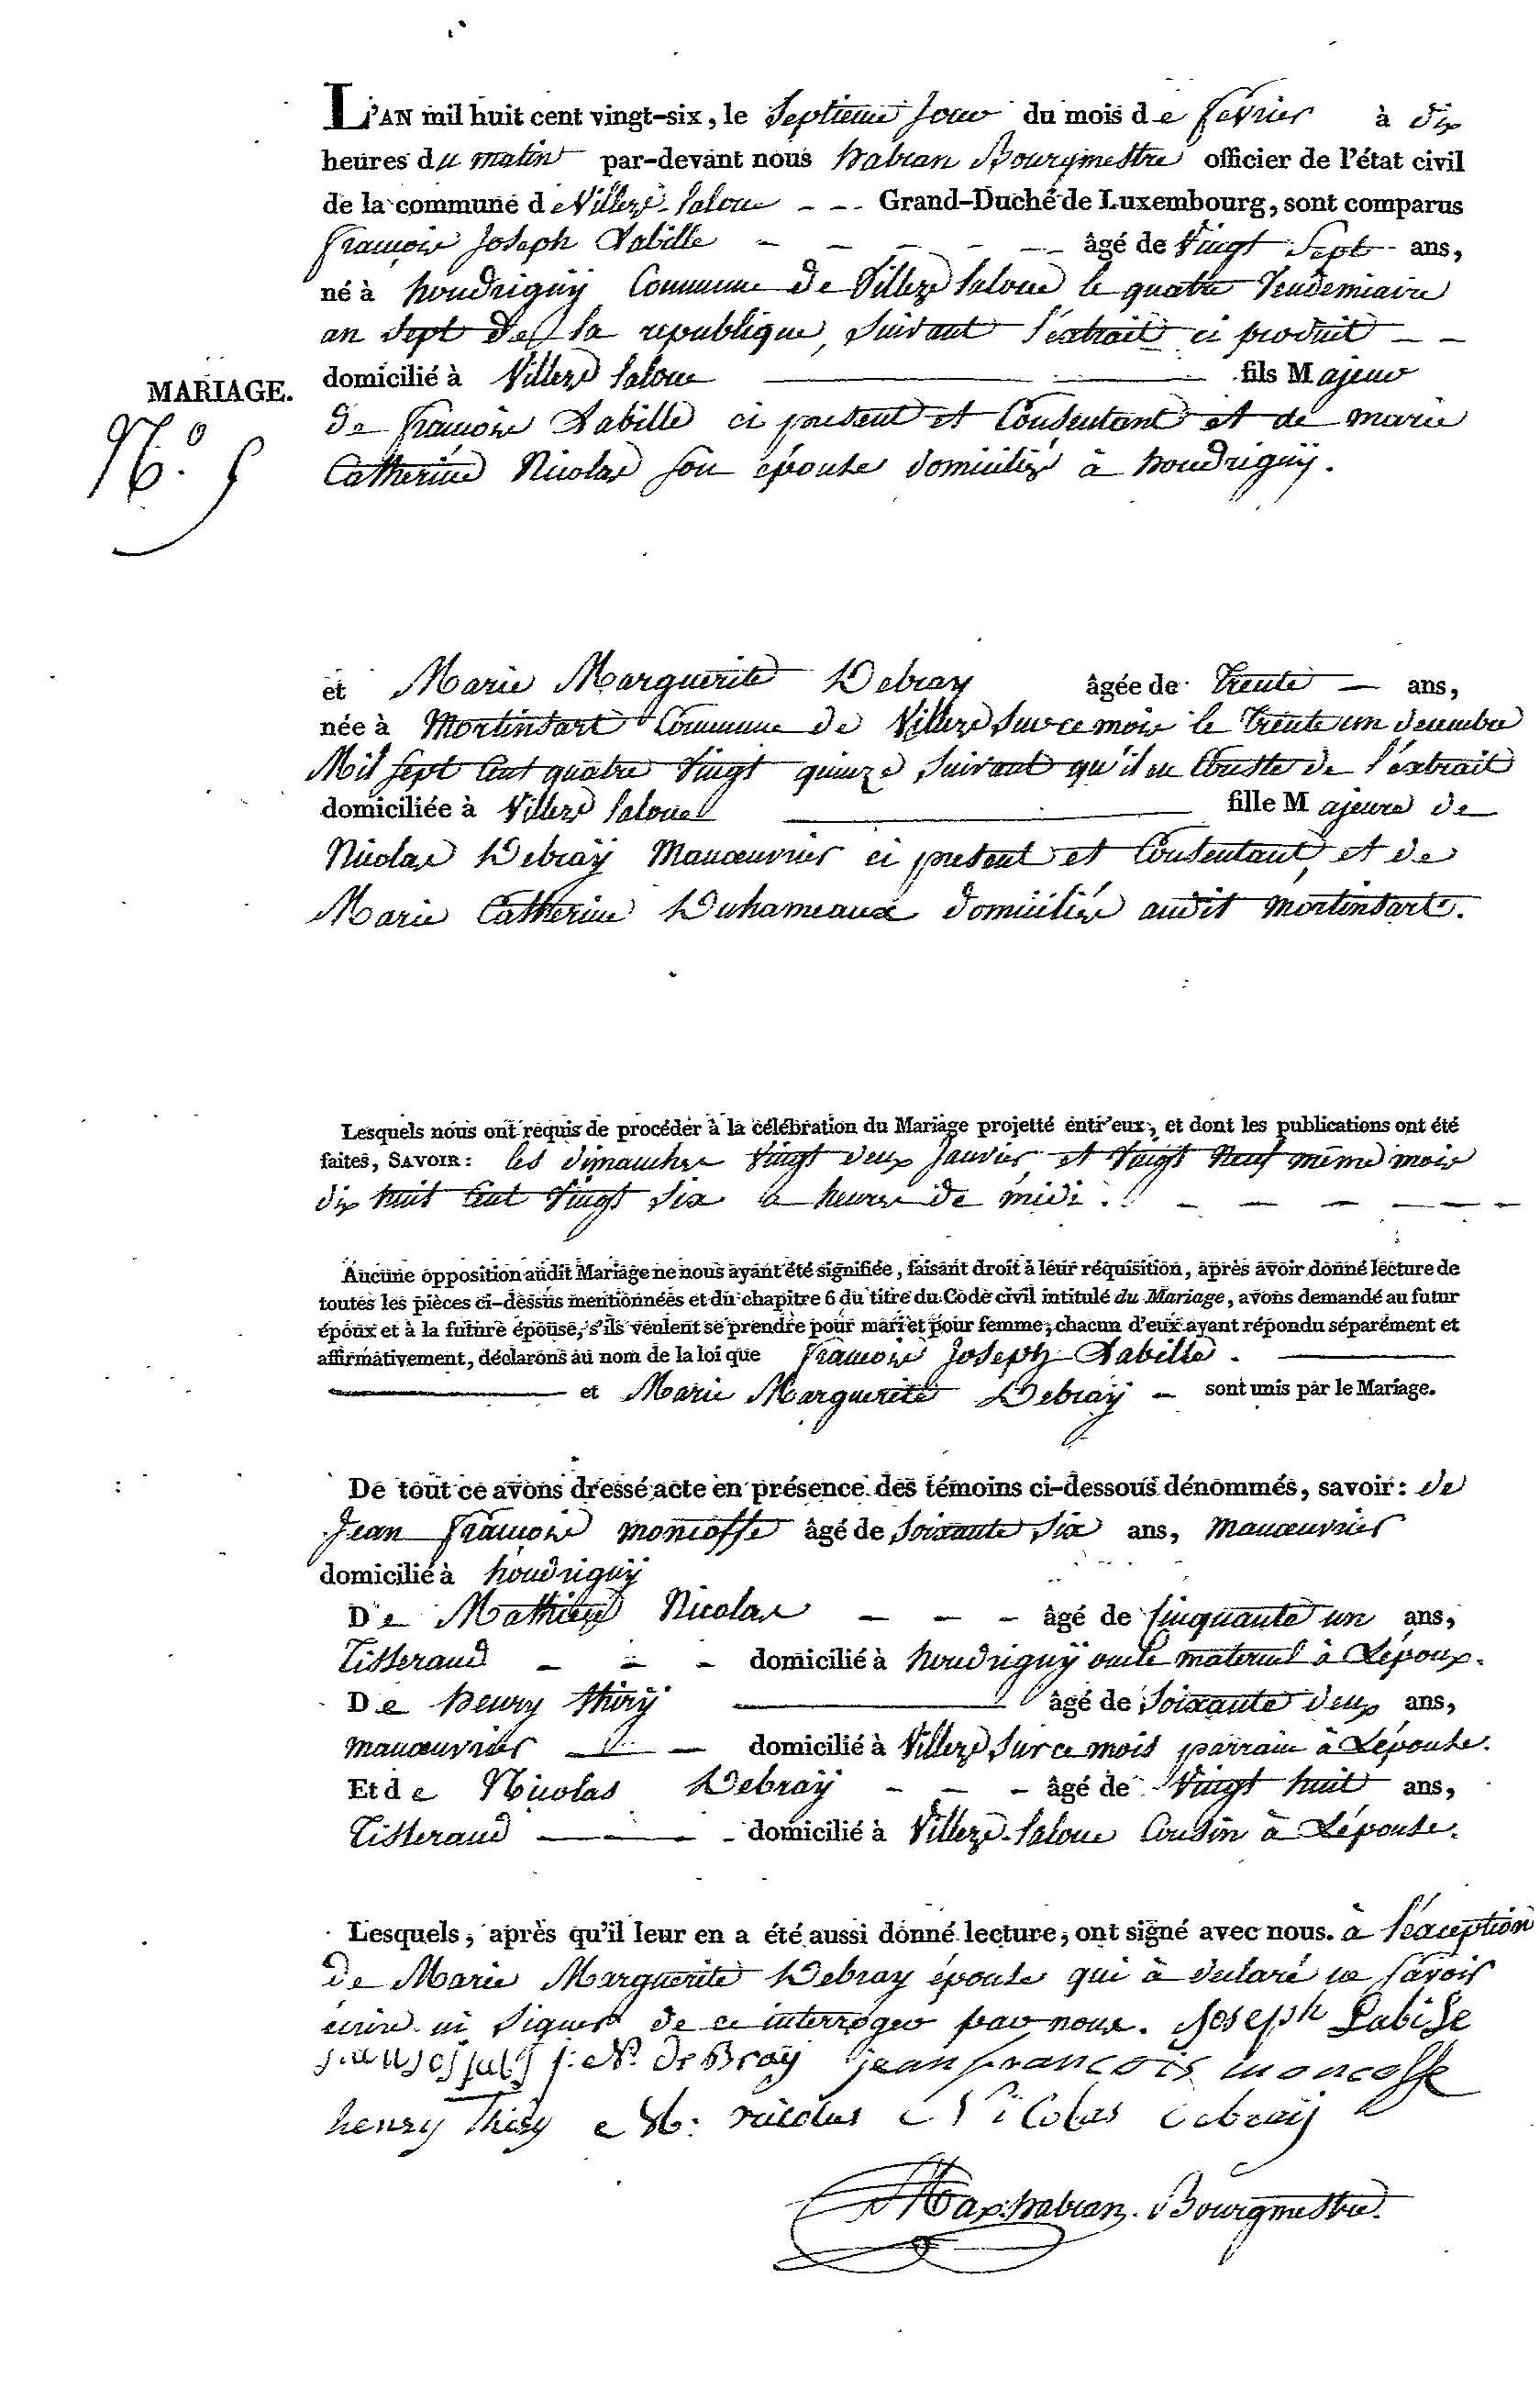 L'AN mil huit cent vingt-six, le Septieme Jour du mois de fevrier à dix
heures du matin par-devant nous habran Bourgmestre officier de l'état civil
de la commune de Villers-laloue - - - Grand-Duché de Luxembourg, sont comparus
françois Joseph Labille - - - - - - âgé de Vingt Sept ans,
né à houdrigny Commune de Villers laloue le quatre Vendemiaire
an sept de la republique, suivant l'extrait ci produit - -
MARIAGE.
N.o 5
domicilié à Villers laloue fils Majeur
de françois Labille ci present et Consentant et de marie
Catherine Nicolas son épouse domiciliés à houdrigny.
et Marie Marguerite Debray âgée de Trente - ans,
née à Mortinsart Commune de Villers sur ce mois le Trente un decembre
Mil sept Cent quatre Vingt quinze suivant qu'il en Conste de l'extrait
domiciliée à Villers laloue fille Majeure de
Nicolas Debraÿ Manœuvrier ci present et Consentant, et de
Marie Catherine Duhameaux domiciliés audit mortinsart.
Lesquels nous ont requis de procéder à la célébration du Mariage projetté entr'eux, et dont les publications ont été
faites, SAVOIR: les dimanches Vingt deux Janvier et Vingt Neuf même mois
dix huit Cent Vingt Six a heures de midi. - - - - - -
Aucune opposition audit Mariage ne nous ayant été signifiée, faisant droit à leur réquisition, après avoir donné lecture de
toutes les pièces ci-dessus mentionnées et du chapitre 6 du titre du Code civil intitulé du Mariage, avons demandé au futur
époux et à la future épouse, s'ils veulent se prendre pour mari et pour femme; chacun d'eux ayant répondu séparément et
affirmativement, déclarons au nom de la loi que françois Joseph Labille.
et Marie Marguerite Debraÿ - sont unis par le Mariage.
De tout ce avons dressé acte en présence des témoins ci-dessous dénommés, savoir: de
Jean françois moncosse âgé de Soixante Six ans, manœuvrier
domicilié à houdrigny
De Mathieu Nicolas - - - âgé de Cinquante un ans,
Tisserand - - - domicilié à houdrigny oncle maternel à Lépoux.
De henry thirÿ âgé de Soixante deux ans,
manœuvrier - - domicilié à Villers sur ce mois parrain à Lépouse.
Et de Nicolas Debraÿ - - - âgé de Vingt huit ans,
Tisserand - - - - domicilié à Villers-laloue Cousin à Lépouse.
Lesquels, après qu'il leur en a été aussi donné lecture, ont signé avec nous. à l'exception
de Marie Marguerite Debray épouse qui à déclaré ne savoir
écrire ni signer de ce interroger par nous. Joseph Labille
N. De Braÿ jean francois moncosse
henry thiry M: nicolas Nicolas debraij
Max: habran. Bourgmestre.